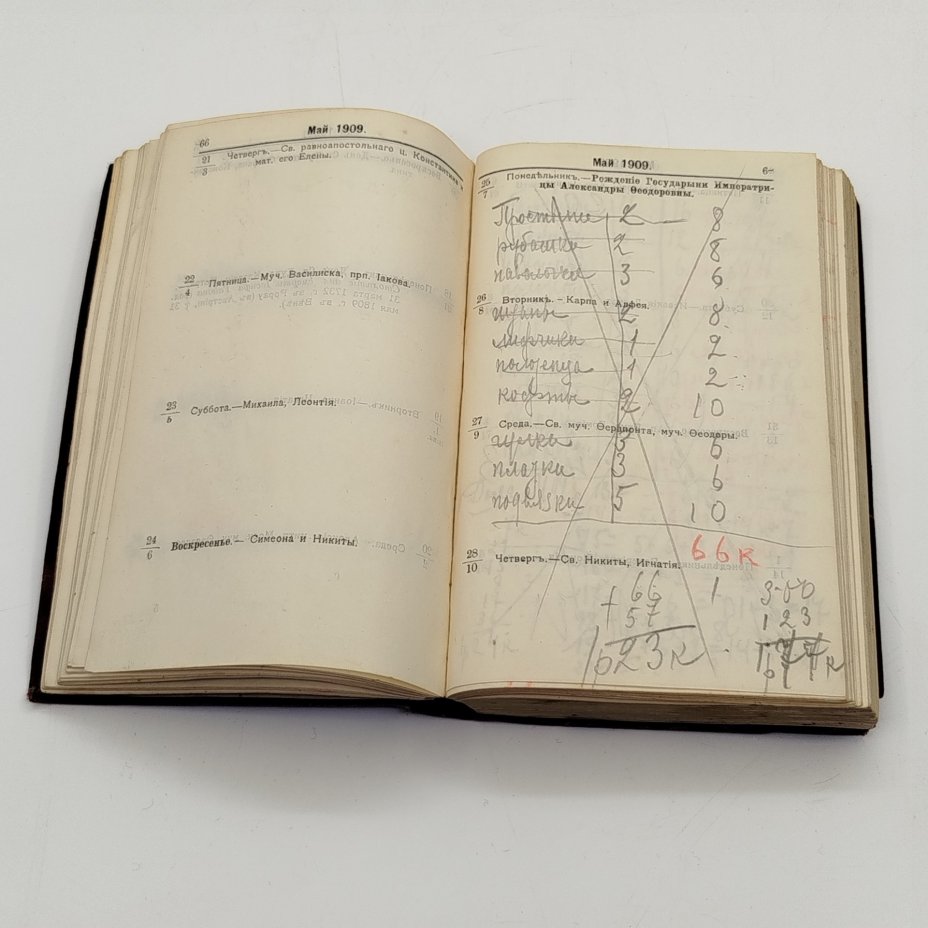 66
Май 1909.
21
3
Четвергъ.—Св. равноапостольнаго ц. Константина и
мат. его Елены.
22
4
Пятница.—Муч. Василиска, прп. Іакова.
23
5
Суббота.—Михаила, Леонтія.
24
6
Воскресенье.— Симеона и Никиты.
Май 1909.
25
7
Понедѣльникъ.—Рожденіе Государыни Императри-
цы Александры Ѳеодоровны.
Простыни 2 — 8
рубашки 2 8
наволочки 3 6
26
8
Вторникъ.—Карпа и Алфея.
2 8
лифчики 1 2
полотенца 1 2
кофты 2 10
27
9
Среда.—Св. муч. Ѳерапонта, муч. Ѳеодоры.
чулки 3 6
платки 3 6
5 10
66 к
28
10
Четвергъ.—Св. Никиты, Игнатія.
66 1 3-00
+ 57 123
123 к